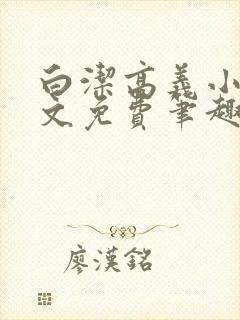 白潔高義小
文免費筆趣
廖漢銘